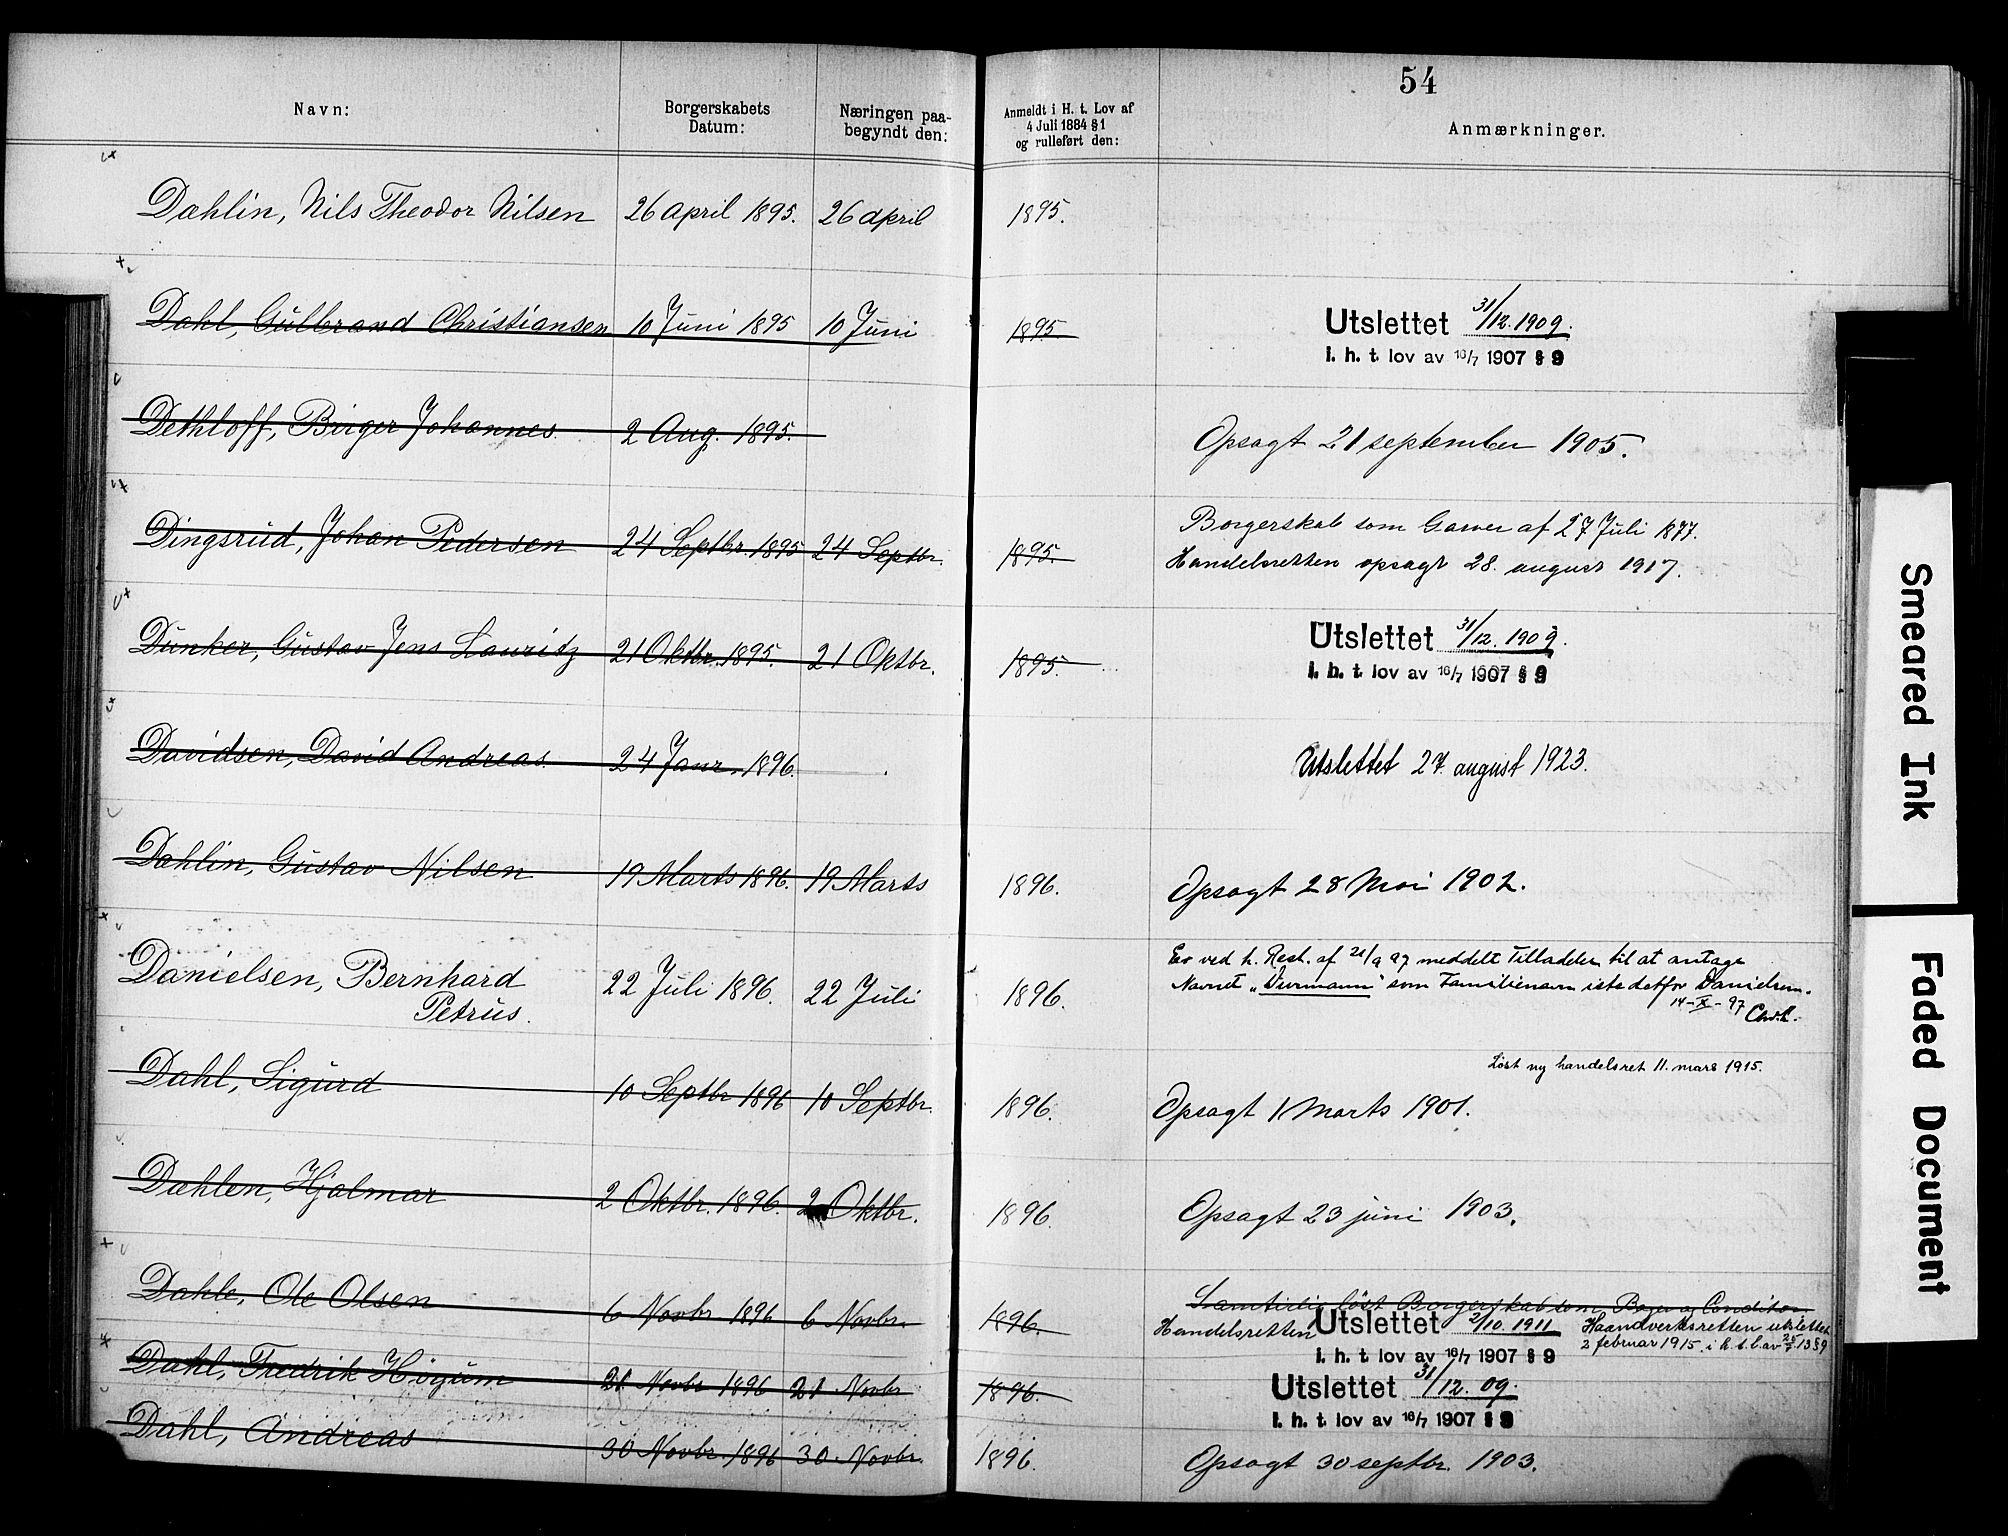 54
Navn: Borgerskabets Datum: Næringen paa-begyndt den: Anmeldt i H. t. Lov af 4 Juli 1884 § 1 og rulleført den: Anmærkninger.
Dahlin, Nils Theodor Nilsen 26 april 1895. 26 april 1895.
Dahl, Gulbrand Christiansen 10 Juni 1895 10 Juni 1895
Utslettet 31/12. 1909.
i. h. t. lov av 16/7 1907 § 9
Dethloff, Birger Johannes. 2 Aug. 1895. Opsagt 21 september 1905.
Dingsrud, Johan Pedersen 24 Septbr. 1895 24 Septbr. 1895.
Borgerskab som Garver af 27 Juli 1877.
Handelsretten opsagt 28. august 1917.
Dunker, Gustav Jens Lauritz 21 Oktbr. 1895. 21 Oktbr. 1895.
Utslettet 31/12. 1909.
i. h. t. lov av 16/7 1907 § 9
Davidsen, David Andreas. 24 Janr. 1896. Utslettet 27. august 1923.
Dahlin, Gustav Nilsen 19 Marts 1896. 19 Marts 1896. Opsagt 28 Mai 1902.
Danielsen, Bernhard
Petrus. 22 Juli 1896. 22 Juli 1896.
Er ved h. Resl. af 21/9 97 meddelt Tilladelse til at antage
Navnet som Familienavn istedetfor Danielsen.
14-X-97
Løst ny handelsret 11. mars 1915.
Dahl, Sigurd 10 Septbr 1896 10 Septbr. 1896. Opsagt 1 Marts 1901.
Dæhlen, Hjalmar 2 Oktbr. 1896. 2 Oktbr. 1896. Opsagt 23 juni 1903.
Dahle, Ole Olsen 6 Novbr 1896 6 Novbr. 1896.
Samtidig löst Borgerskab som Bager og Conditor
Handelsretten Utslettet 2/10. 1911 Haandverksretten utslettet
i. h. t. lov av 16/7 1907 § 9 2 februar 1915. i h. t. l. av 25/7 13 § 9
Dahl, Fredrik Höyum 21 Novbr 1896 21 Novbr 1896.
Utslettet 31/12. 09.
i. h. t. lov av 16/7 1907 § 9
Dahl, Andreas 30 Novbr. 1896 30 Novbr. 1896. Opsagt 30 septbr. 1903.
Smeared Ink
Faded Document